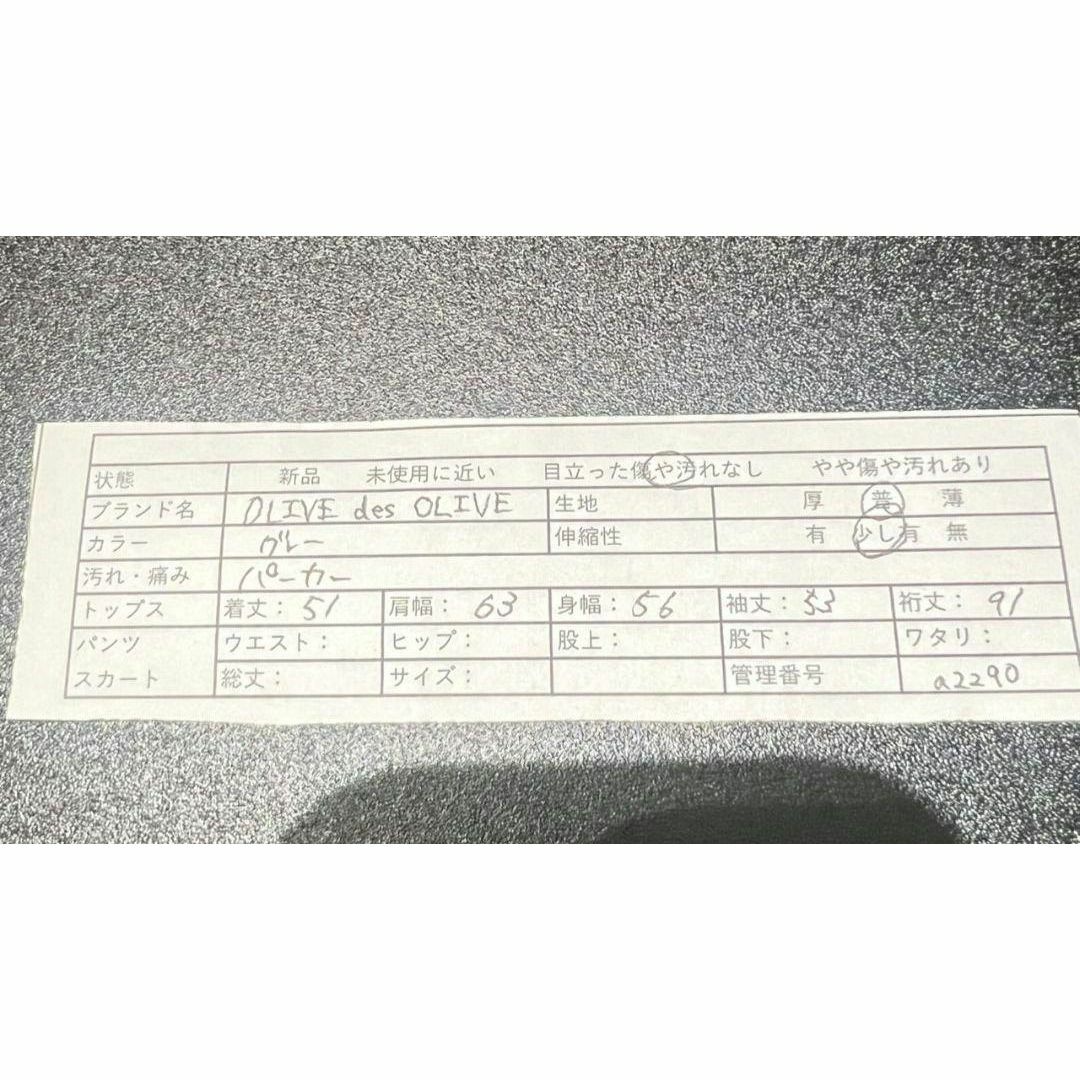 状態 新品 未使用に近い 目立った傷や汚れなし やや傷や汚れあり
ブランド名 OLIVE des OLIVE 生地 厚 普 薄
カラー グレー 伸縮性 有 少し有 無
汚れ・痛み パーカー
トップス 着丈: 51 肩幅: 63 身幅: 56 袖丈: 53 裄丈: 91
パンツ ウエスト: ヒップ: 股上: 股下: ワタリ:
スカート 総丈: サイズ: 管理番号 a2290